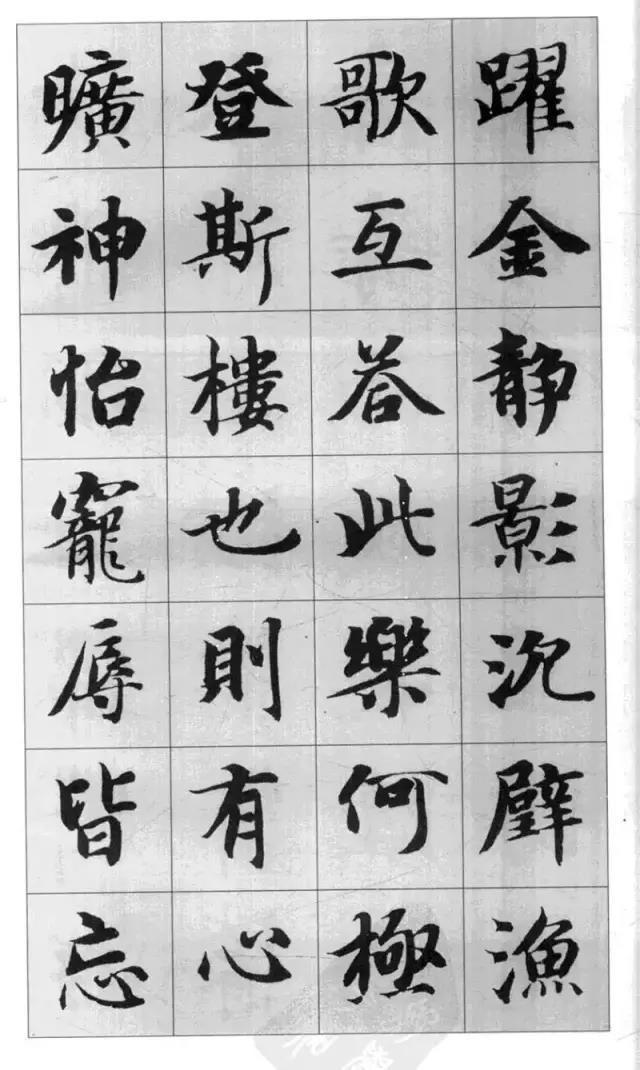 躍金静影沉璧漁
歌互荅此樂何極
登斯樓也則有心
曠神怡寵辱皆忘